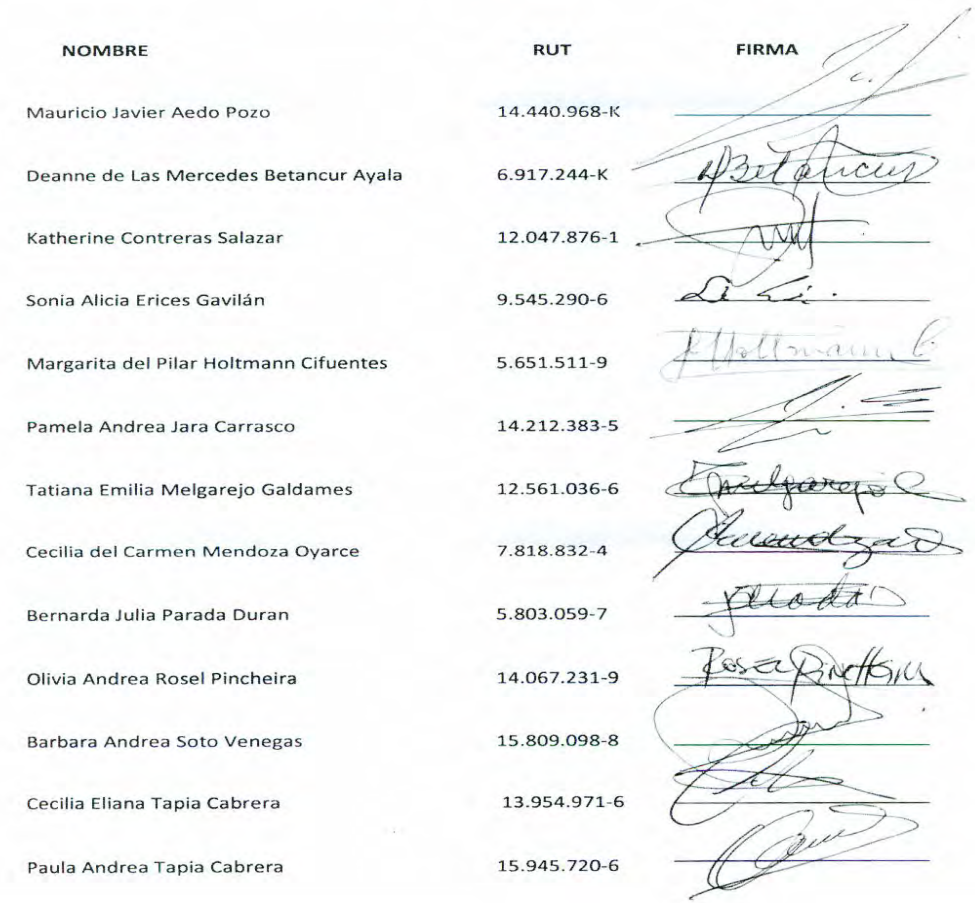 NOMBRE RUT FIRMA
Mauricio Javier Aedo Pozo 14.440.968-K
Deanne de Las Mercedes Betancur Ayala 6.917.244-K Betancur
Katherine Contreras Salazar 12.047.876-1
Sonia Alicia Erices Gavilán 9.545.290-6
Margarita del Pilar Holtmann Cifuentes 5.651.511-9 Holtmann C
Pamela Andrea Jara Carrasco 14.212.383-5
Tatiana Emilia Melgarejo Galdames 12.561.036-6 Melgarejo
Cecilia del Carmen Mendoza Oyarce 7.818.832-4
Bernarda Julia Parada Duran 5.803.059-7
Olivia Andrea Rosel Pincheira 14.067.231-9 Rosel Pincheira
Barbara Andrea Soto Venegas 15.809.098-8
Cecilia Eliana Tapia Cabrera 13.954.971-6
Paula Andrea Tapia Cabrera 15.945.720-6